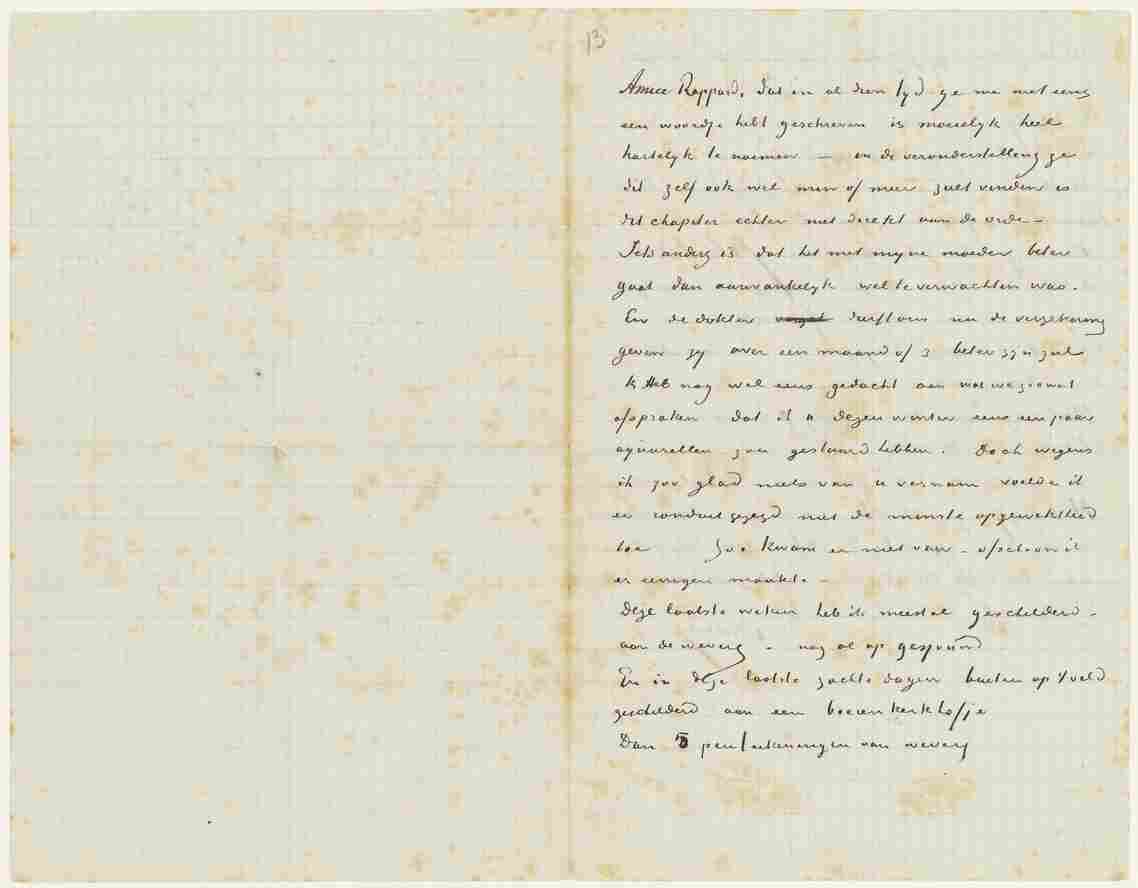 13
Amice Rappard, dat in al dien tijd ge me niet eens
een woordje hebt geschreven is moeielyk heel
hartelyk te noemen – in de veronderstelling ge
dit zelf ook wel min of meer zult vinden is
dit chapiter echter niet direkt aan de orde –
Iets anders is dat het met myne moeder beter
gaat dan aanvankelyk wel te verwachten was.
En de dokter durft ons nu de verzekering
geven zy over een maand of 3 beter zyn zal
Ik Heb nog wel eens gedacht aan wat we zoowat
afspraken dat ik u dezen winter eens een paar
aquarellen zou gestuurd hebben. Doch wegens
ik zoo glad niets van u vernam voelde ik
er ronduit gezegd niet de minste opgewektheid
toe Zoo kwam er niet van – ofschoon ik
er eenigen maakte. –
Deze laatste weken heb ik meestal geschilderd –
aan de wevers – nog al op gespoord
En in deze laatste zachte dagen buiten op 't veld
geschilderd aan een boerenkerkhofje
Dan 5 penteekeningen van wevers